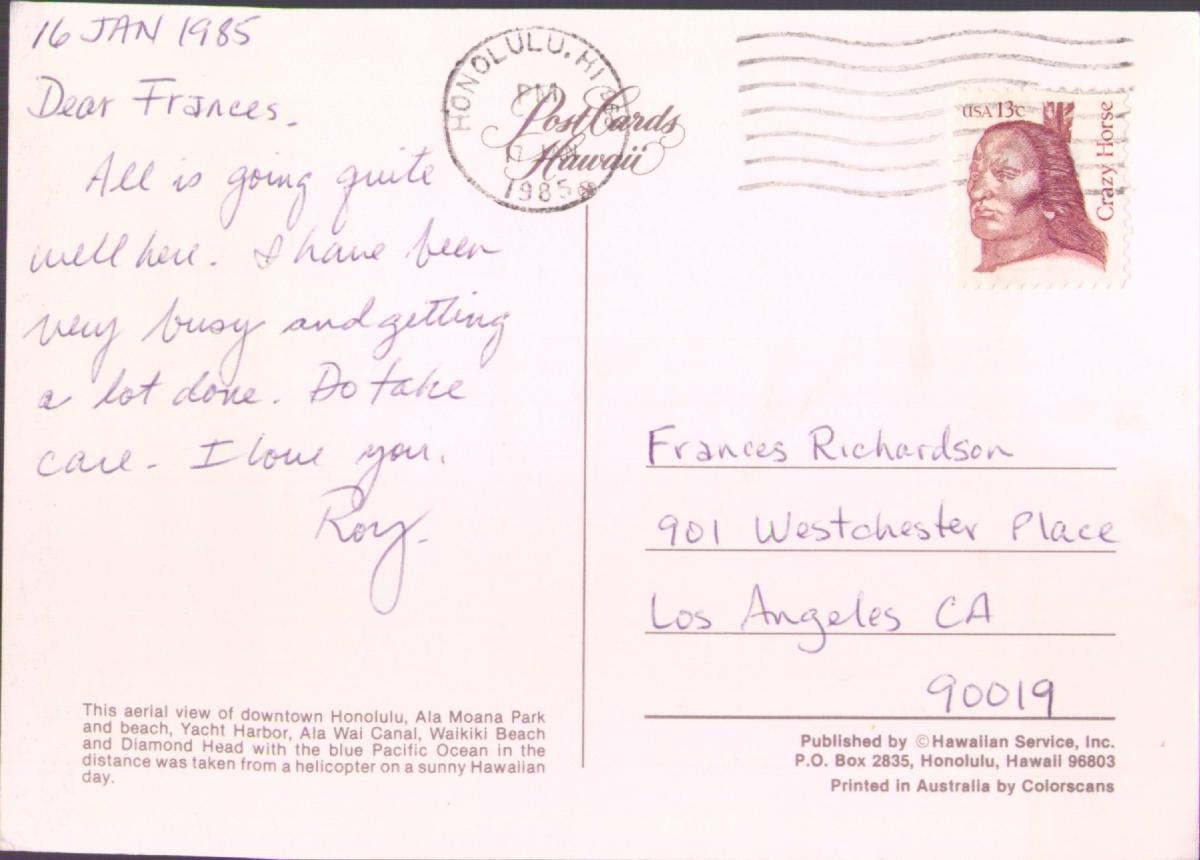 16 JAN 1985
Dear Frances.
All is going quite
well here. I have been
very busy and getting
a lot done. Do take
care. I love you.
Roy.
This aerial view of downtown Honolulu, Ala Moana Park
and beach, Yacht Harbor, Ala Wai Canal, Waikiki Beach
and Diamond Head with the blue Pacific Ocean in the
distance was taken from a helicopter on a sunny Hawaiian
day.
HONOLULU, HI
PM
1985
Post Cards
Hawaii
USA 13c
Crazy Horse
Frances Richardson
901 Westchester Place
Los Angeles CA
90019
Published by ©Hawaiian Service, Inc.
P.O. Box 2835, Honolulu, Hawaii 96803
Printed in Australia by Colorscans